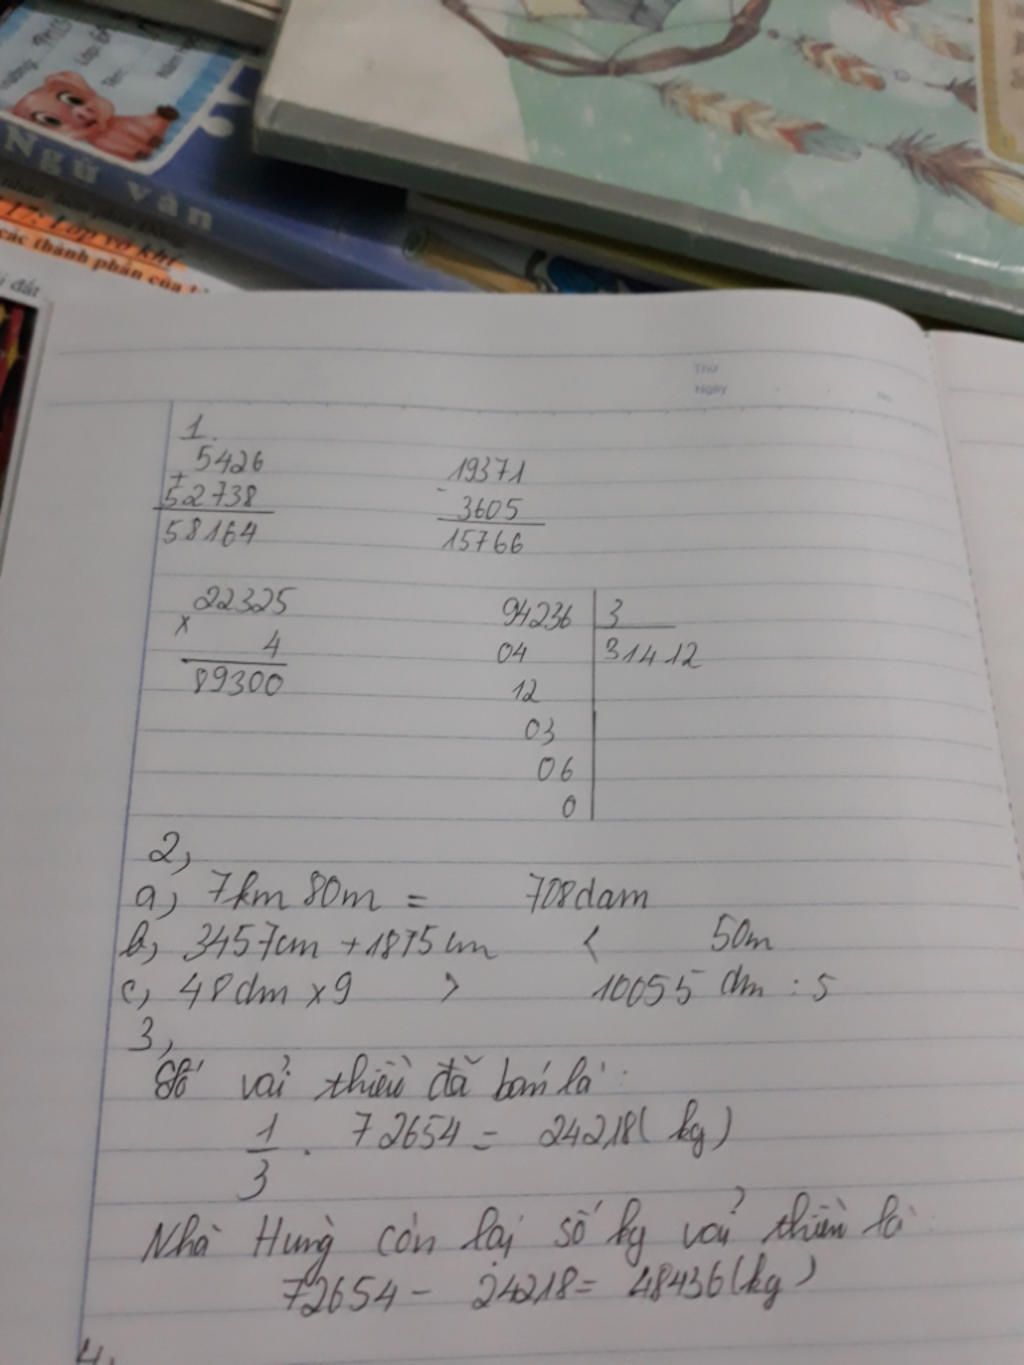 Ngữ văn
17: Lớp vỏ khí
các thành phần của
đất
Thứ
Ngày
1.
5426
+
52738
58164
19371
-
3605
15766
22325
x
4
89300
94236 3
04 31412
12
03
06
0
2,
a, 7km 80m = 708dam
b, 3457cm + 1875cm < 50m
c, 48dm x 9 > 10055 dm : 5
3,
Số vải thiều đã bán là:
1/3 . 72654 = 24218 (kg)
Nhà Hưng còn lại số kg vải thiều là:
72654 - 24218 = 48436 (kg)
4,